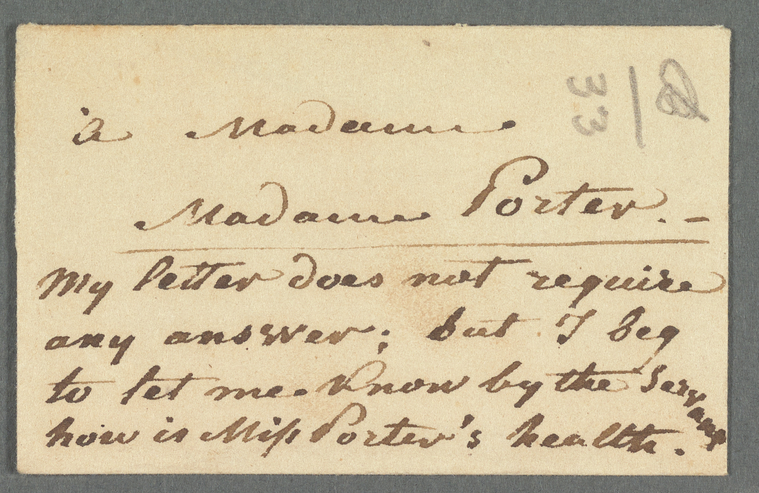 à Madame
Madame Porter. –
My letter does not require
any answer; but I beg
to let me know by the Servant
how is Miss Porter's health.
33